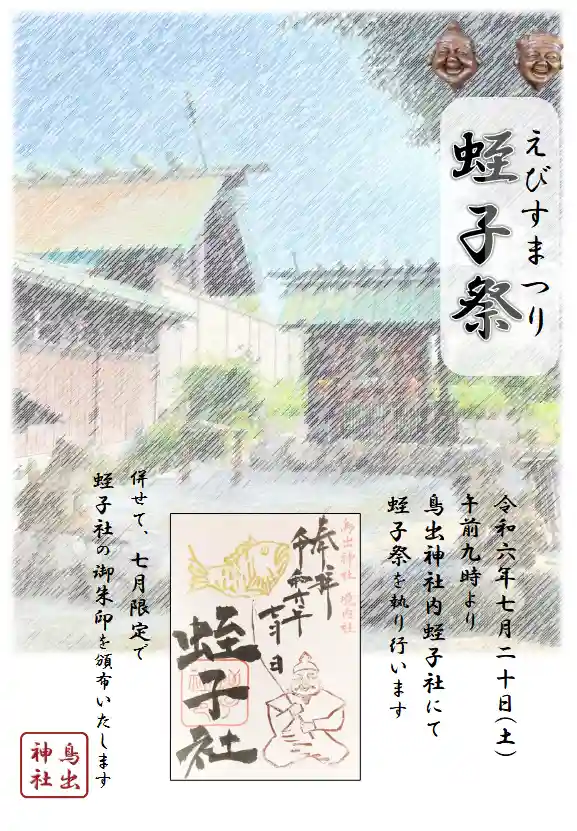 えびすまつり
蛭子祭
令和六年七月二十日(土)
午前九時より
鳥出神社内蛭子社にて
蛭子祭を執り行います
鳥出神社 境内社
奉拝
令和六年
七月 日
蛭子社
併せて、七月限定で
蛭子社の御朱印を頒布いたします
鳥出
神社